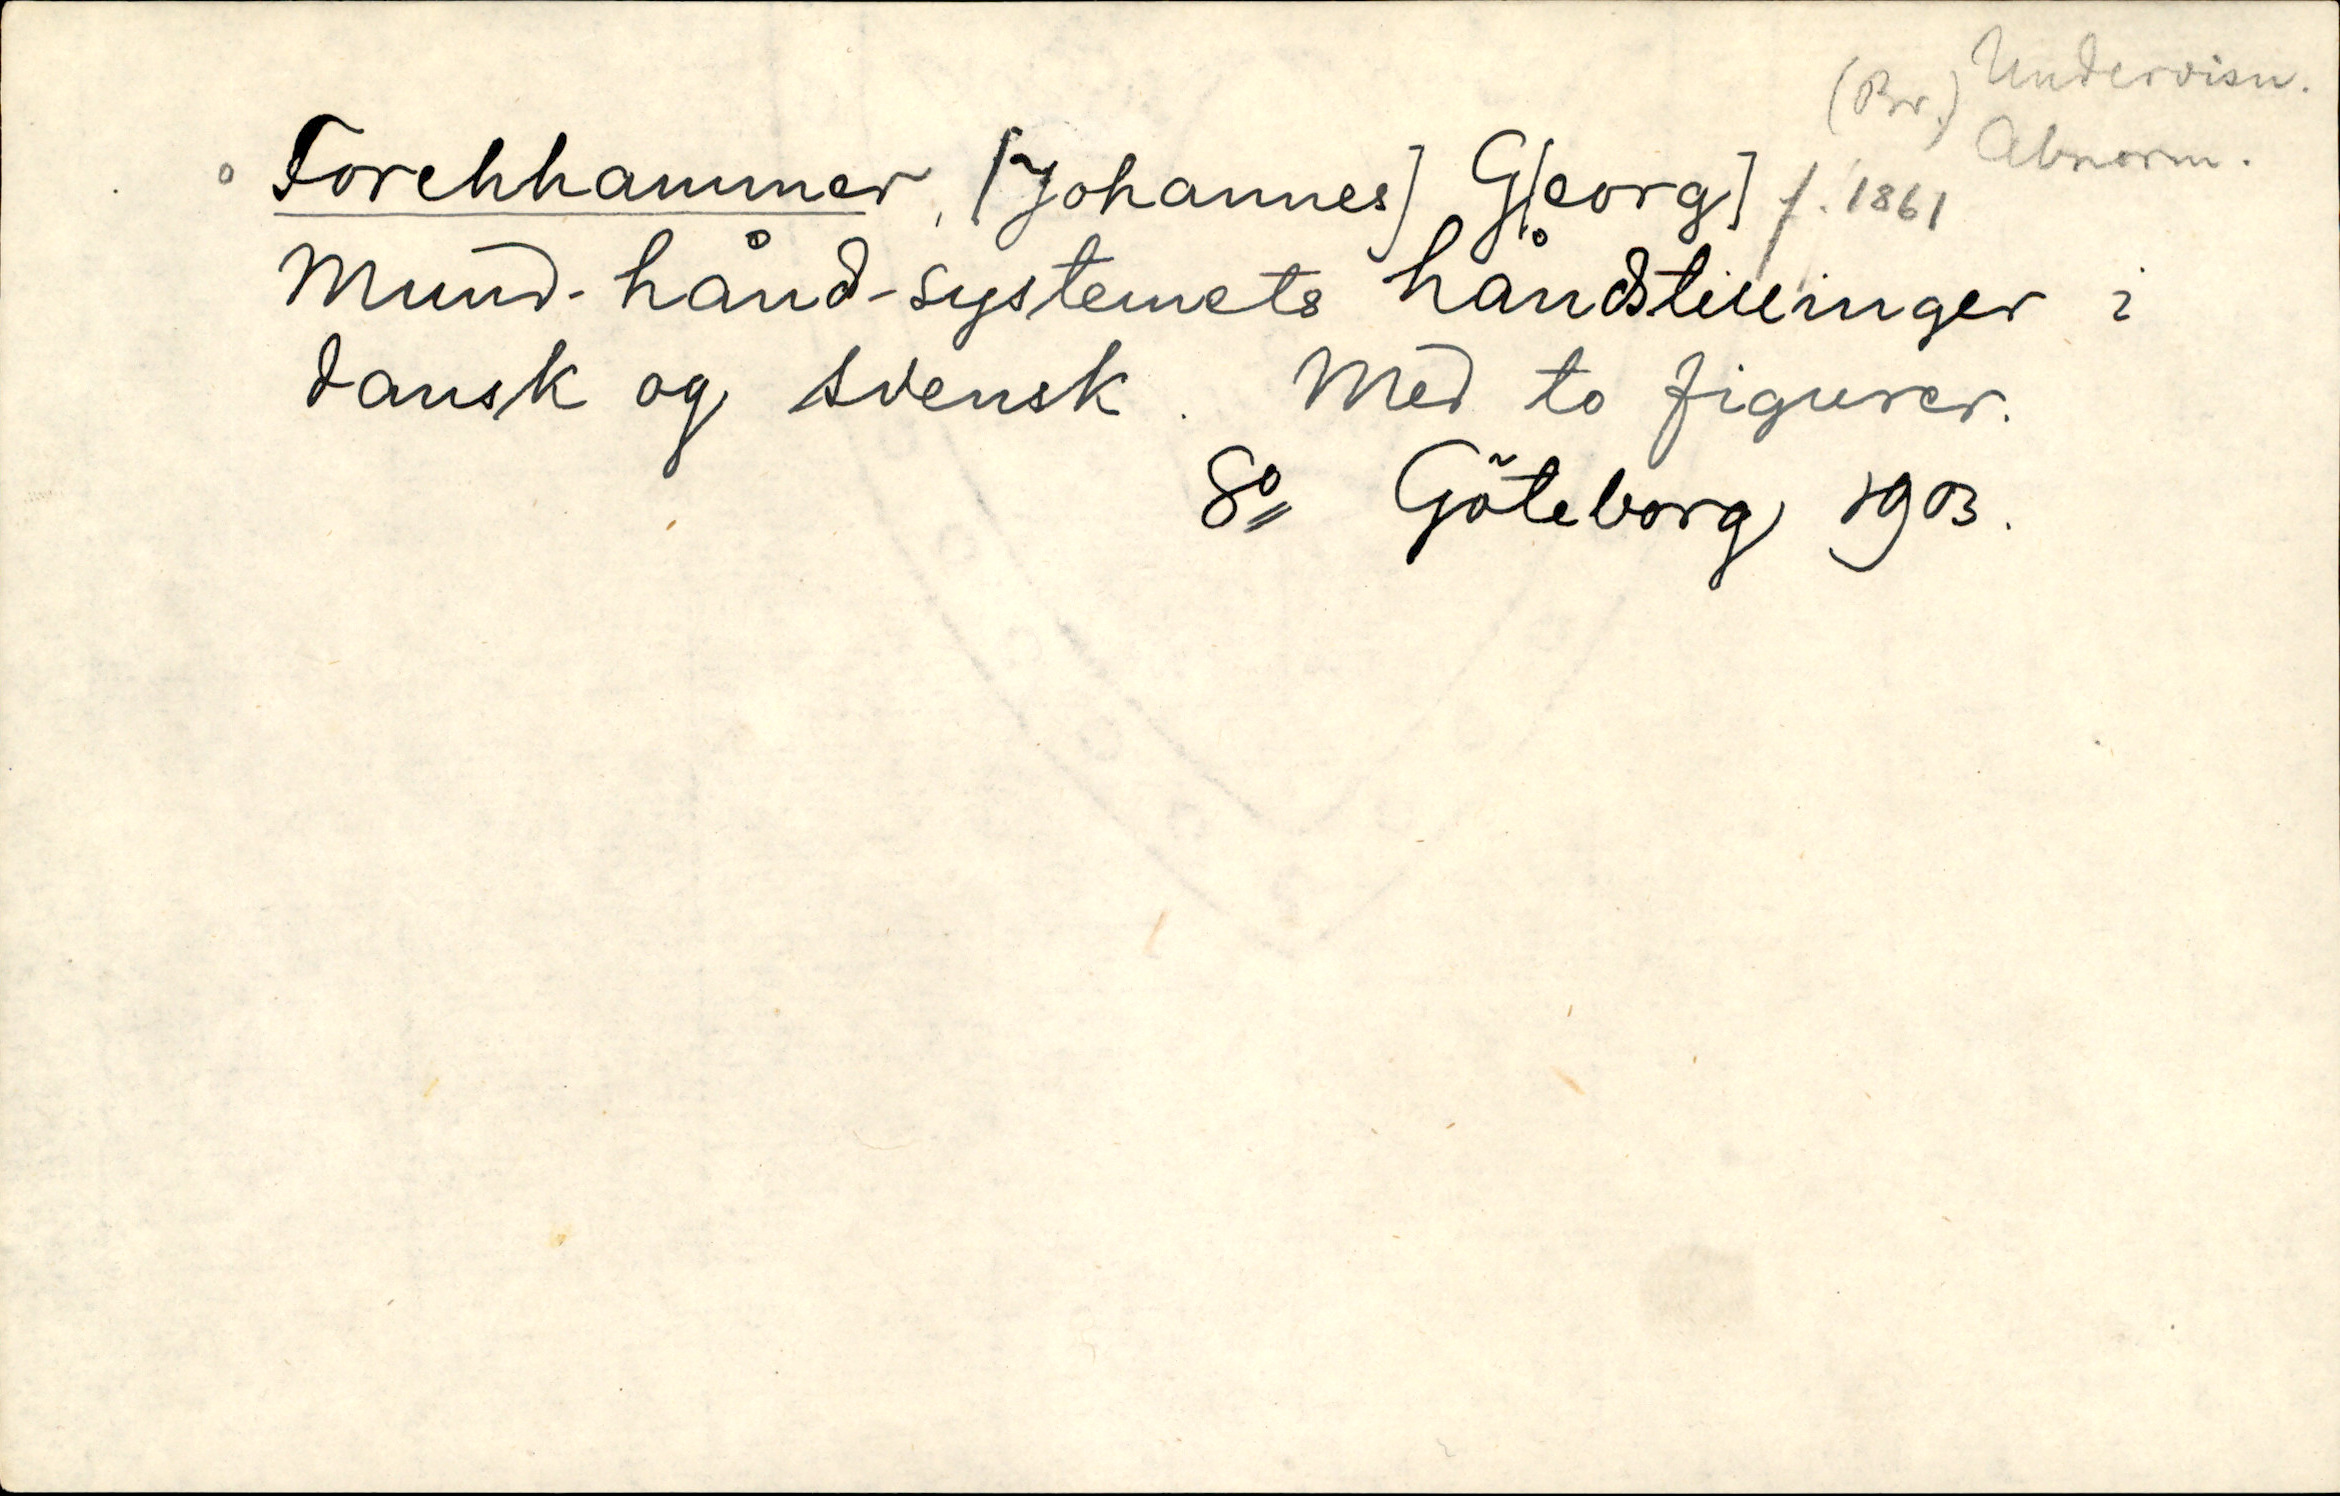 (Br.) Undervisn.
Abnorm.
Forchhammer, [Johannes] G[eorg] f. 1861
Mund-hånd-systemets håndstillinger i
dansk og svensk. Med to figurer.
8º Göteborg 1903.